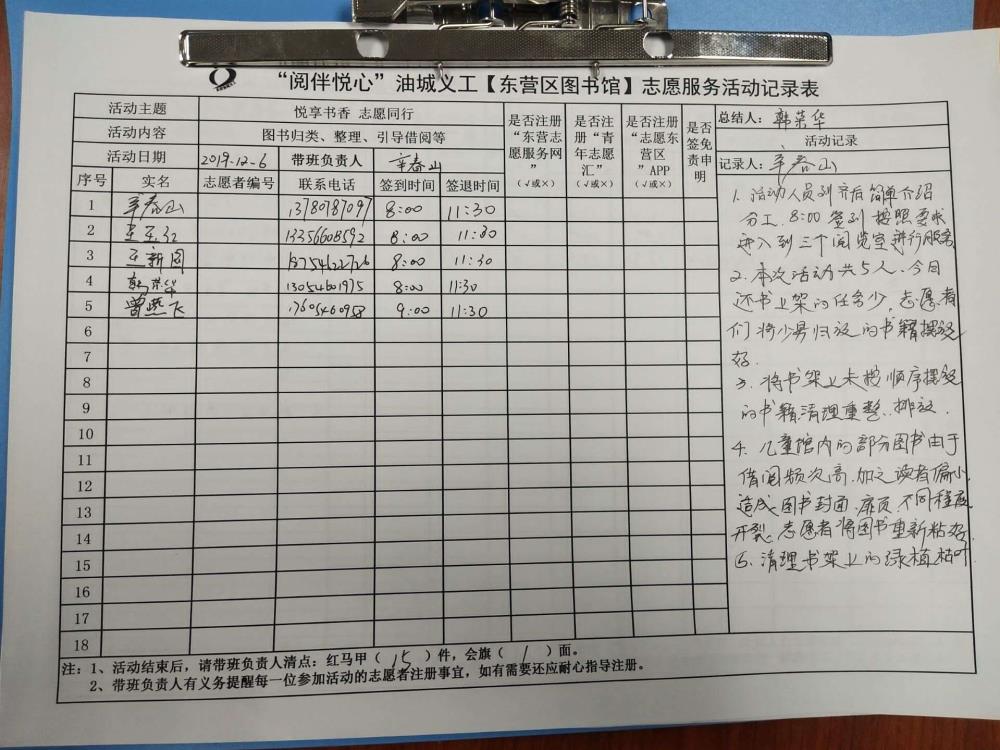 “阅伴悦心”油城义工【东营区图书馆】志愿服务活动记录表
活动主题 悦享书香 志愿同行
活动内容 图书归类、整理、引导借阅等
活动日期 2019-12-6 带班负责人 辛春山
序号 实名 志愿者编号 联系电话 签到时间 签退时间
是否注册“东营志愿服务网”（√或×）
是否注册“青年志愿汇”（√或×）
是否注册“志愿东营区”APP（√或×）
是否签免责申明
1 辛春山 13780787097 8:00 11:30
2 13356608592 8:00 11:30
3 王新国 8:00 11:30
4 韩荣华 13054601975 8:00 11:30
5 曾照飞 13605460958 9:00 11:30
6
7
8
9
10
11
12
13
14
15
16
17
18
总结人：韩荣华
活动记录
记录人：辛春山
1. 活动人员到齐后简单介绍
分工. 8:00 签到 按照要求
进入到三个阅览室进行服务
2. 本次活动共5人、今日
还书上架的任务少，志愿者
们将少量归放的书籍摆放
好.
3. 将书架上未按顺序摆放
的书籍清理重整、排放.
4. 儿童馆内的部分图书由于
借阅频次高、加之读者偏小,
造成图书封面、扉页、不同程度
开裂、志愿者将图书重新粘好.
5. 清理书架上的绿植枯叶.
注：1、活动结束后，请带班负责人清点：红马甲（ 15 ）件，会旗（ 1 ）面。
2、带班负责人有义务提醒每一位参加活动的志愿者注册事宜，如有需要还应耐心指导注册。